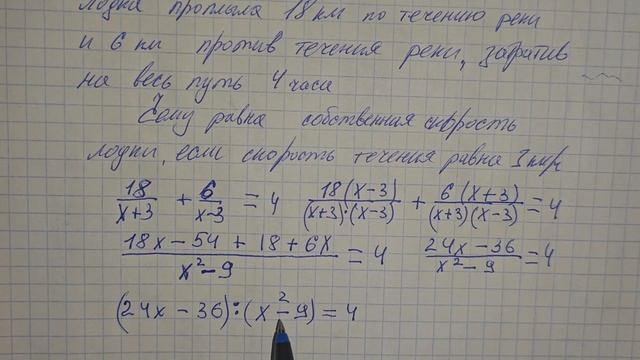 Лодка проплыла 18 км по течению реки
и 6 км против течения реки, затратив
на весь путь 4 часа
Чему равна собственная скорость
лодки, если скорость течения равна 3 км/ч
18/(x+3) + 6/(x-3) = 4 18(x-3)/((x+3)·(x-3)) + 6(x+3)/((x+3)(x-3)) = 4
(18x-54+18+6x)/(x²-9) = 4 (24x-36)/(x²-9) = 4
(24x-36):(x²-9) = 4